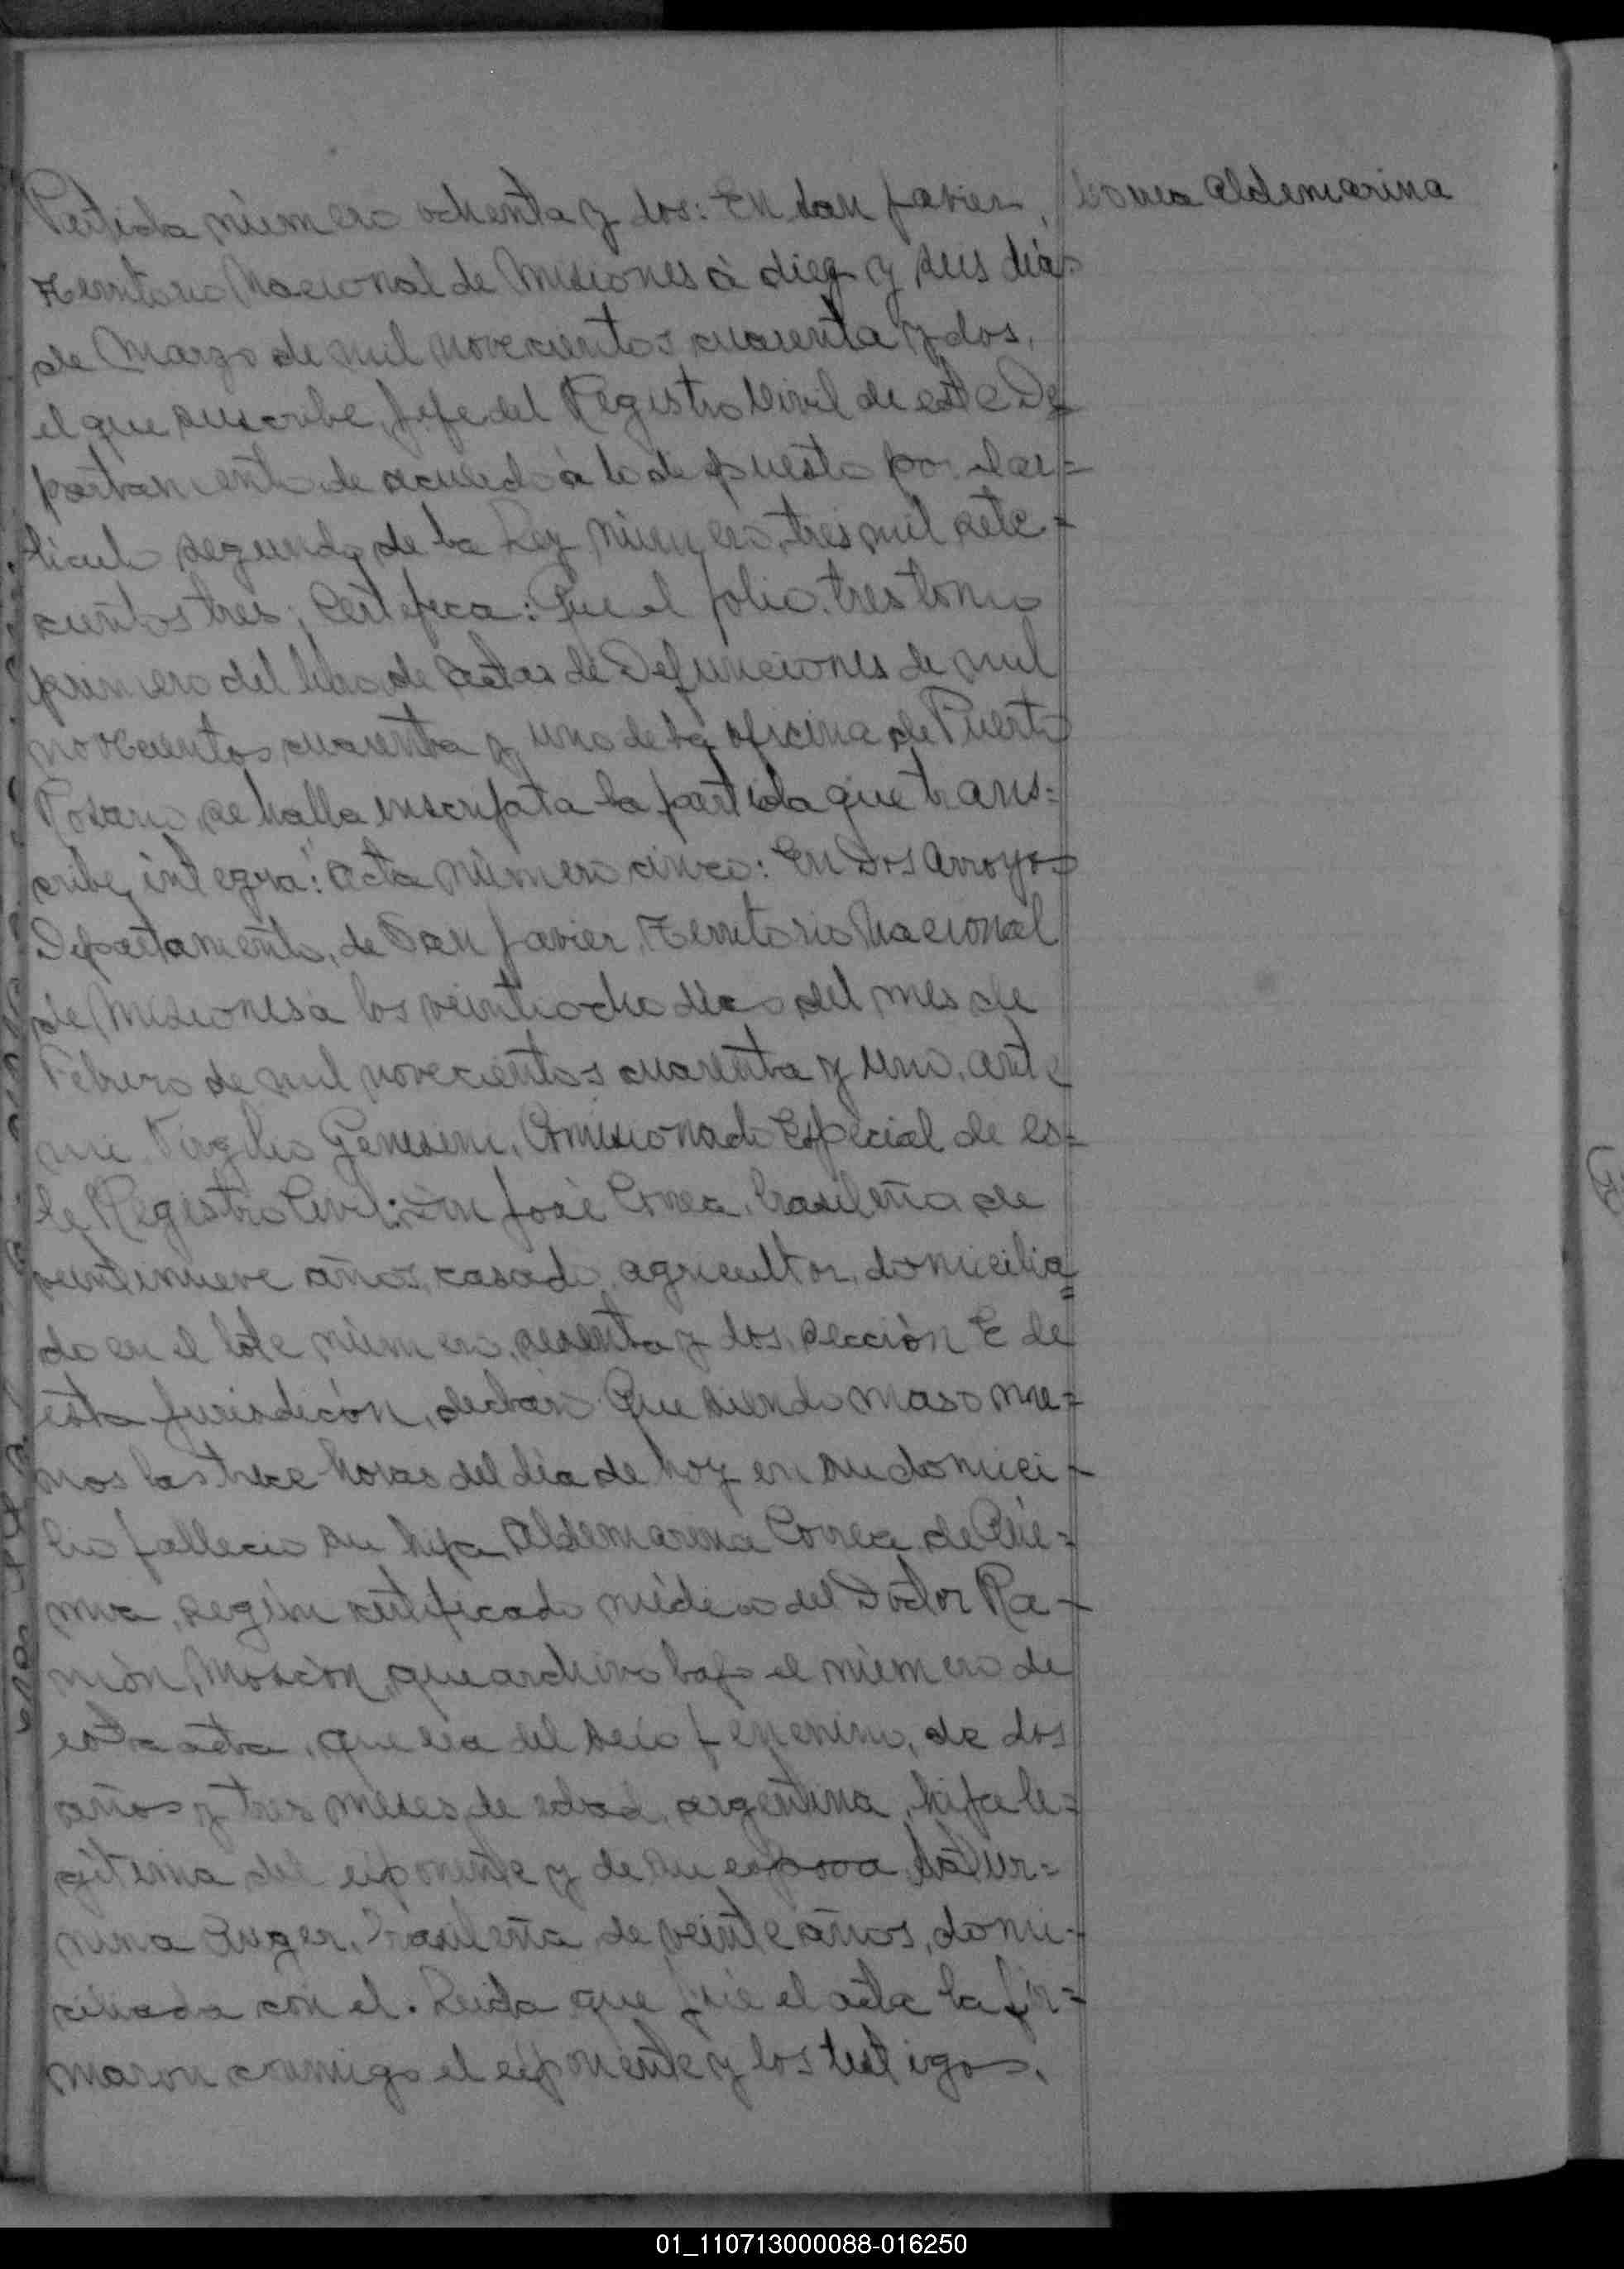 Partida número ochenta y dos: En San Javier,
Correa Aldemarina
Territorio Nacional de Misiones à diez y seis días
de Marzo de mil novecientos cuarenta y dos,
el que suscribe, Jefe del Registro Civil de este De
partamento de acuerdo a lo dispuesto por el ar=
ticulo segundo de la Ley número, tres mil sete=
cientos tres; Certifica: Que al folio tres tomo
primero del libro de actas de Defunciones de mil
novecientos cuarenta y uno de la oficina de Puerto
Rosario, se halla inscripta la partida que trans=
cribe, integra: "Acta número cinco: En Dos Arroyos
Departamento, de San Javier, Territorio Nacional
de Misiones à los veintiocho días del mes de
Febrero de mil novecientos cuarenta y uno, ante
mi, Virgilio Genesini, Comisionado Especial de es=
te Registro Civil: Don José Correa, brasileña de
veintinueve años, casado, agricultor, domicilia=
do en el lote número, sesenta y dos, sección E de
esta jurisdición, declaró: Que siendo mas o me=
nos las trece horas del dia de hoy en su domici-
lio fallecio su hija, Aldemarina Correa, de
según certificado médico del Doctor Ra-
món, que archivo bajo el número de
esta acta, que era del sexo femenino, de dos
años y tres meses de edad, argentina, hija le=
gitima del exponente y de su esposa Satur=
nina brasileña de veinte años, domi-
ciliada con el. Leida que fué el acta la fir=
maron conmigo el exponente y los testigos,
01_110713000088-016250